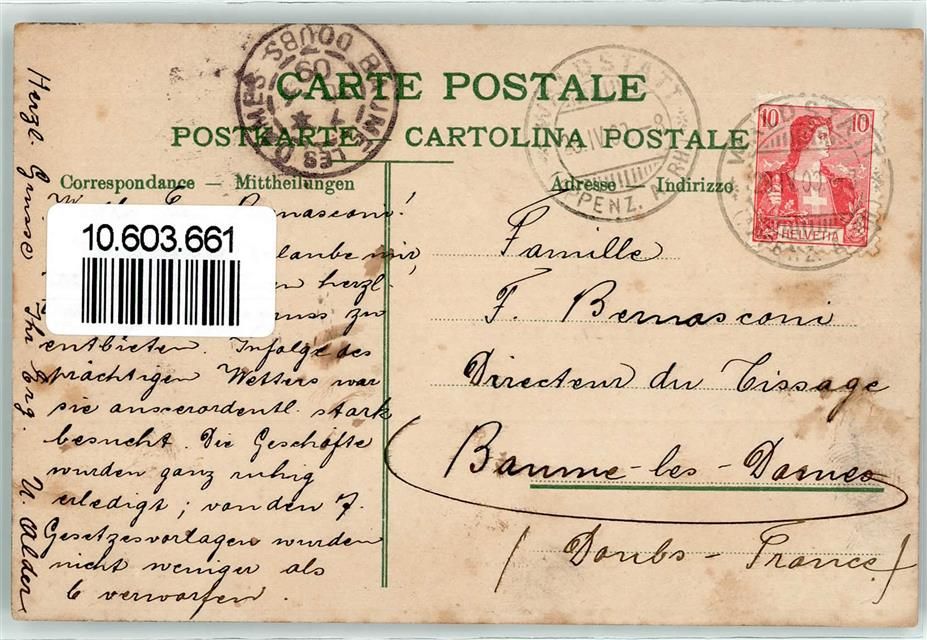 CARTE POSTALE
POSTKARTE — CARTOLINA POSTALE
Correspondance — Mittheilungen
Adresse — Indirizzo
BAUME LES DAMES DOUBS
09
WALDSTATT
APPENZ. A. RH.
10 10
HELVETIA
10.603.661
Bernasconi!
laube mir
herzl.
uss zu
entbieten. Infolge des
prächtigen Wetters war
sie ausserordentl. stark
besucht. Die Geschäfte
wurden ganz ruhig
erledigt; von den 7.
Gesetzesvorlagen wurden
nicht weniger als
6 verworfen.
Herzl. Grüsse
Ihr Erg.
U. Alder
Famille
F. Bernasconi
Directeur du Tissage
Baume-les-Dames
(Doubs - France)